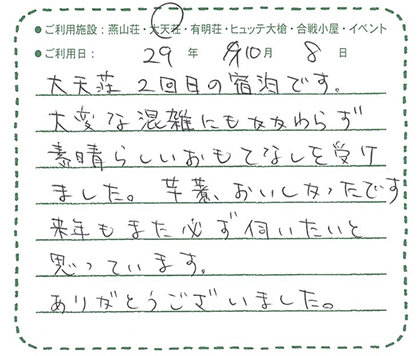 ●ご利用施設：燕山荘・大天荘・有明荘・ヒュッテ大槍・合戦小屋・イベント
●ご利用日：29年 10月 8日
大天荘 2回目の宿泊です。
大変な混雑にもかかわらず
素晴らしいおもてなしを受け
ました。芋羹、おいしかったです
来年もまた必ず伺いたいと
思っています。
ありがとうございました。